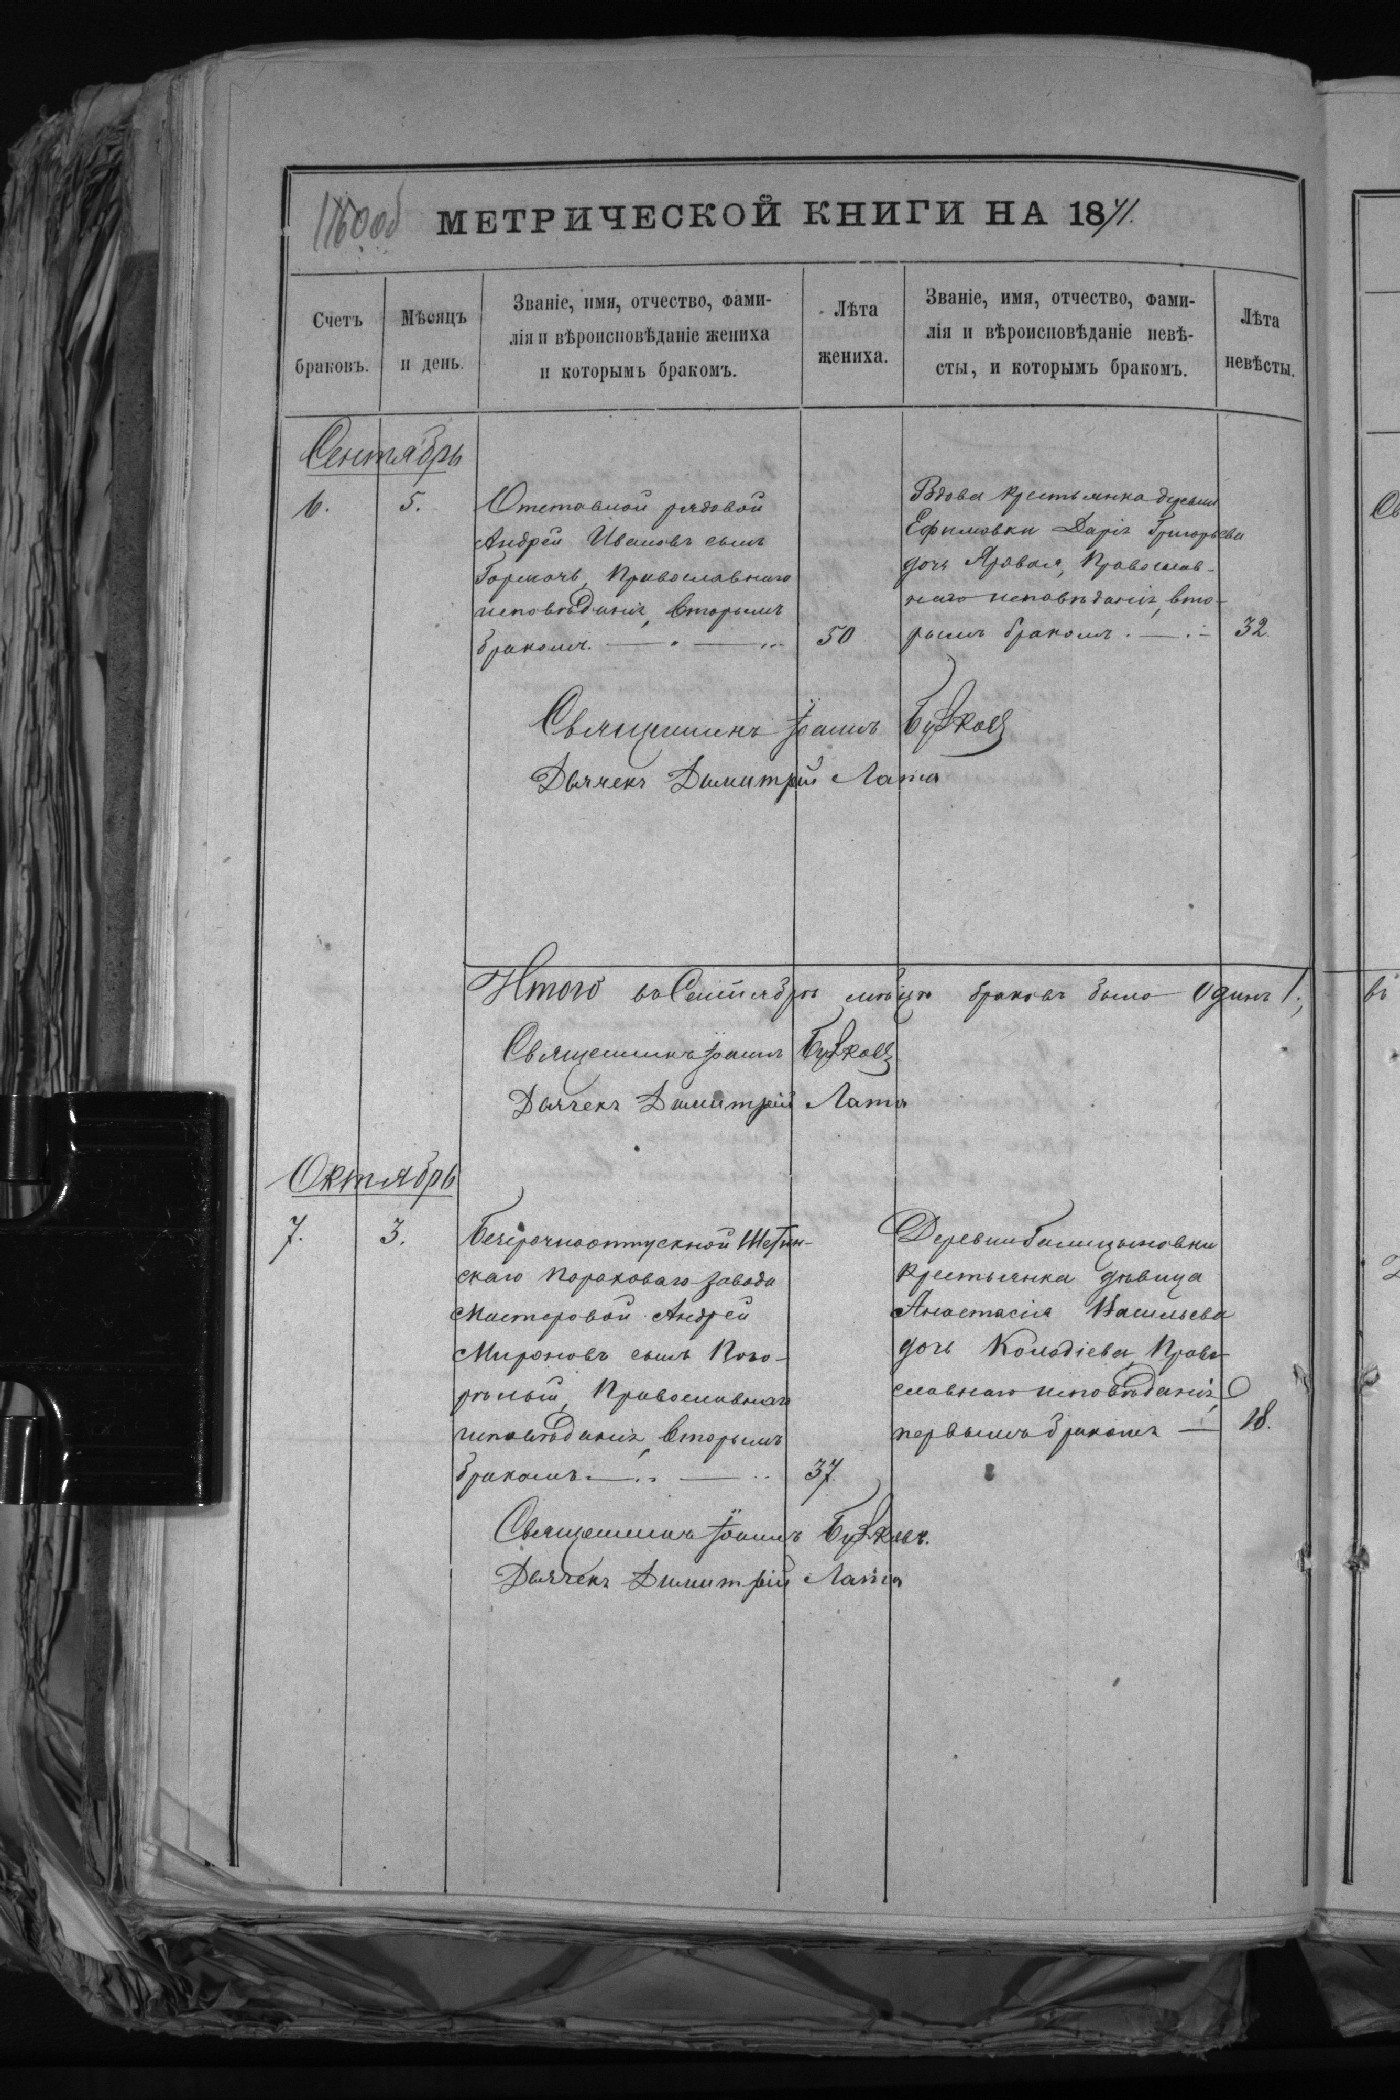 МЕТРИЧЕСКОЙ КНИГИ НА 1871.
Счетъ браковъ.
Мѣсяцъ и день.
Званіе, имя, отчество, фами-
лія и вѣроисповѣданіе жениха
и которымъ бракомъ.
Лѣта жениха.
Званіе, имя, отчество, фами-
лія и вѣроисповѣданіе невѣ-
сты, и которымъ бракомъ.
Лѣта невѣсты.
Сентябрь
6.
5.
Отставной рядовой
Андрей Ивановъ сынъ
Горкачь, Православнаго
исповѣданія, вторымъ
бракомъ.
50
Вдова крестьянка деревни
Ефимовки Дарія Григорьева
дочь Яровая, Православ-
наго исповѣданія, вто-
рымъ бракомъ.
32.
Священникъ Іоаннъ
Дьячекъ Димитрій Лата
Итого въ Сентябрѣ мѣсяцѣ браковъ было одинъ 1.,
Священникъ Іоаннъ
Дьячекъ Димитрій Лата
Октябрь
7.
3.
Безсрочноотпускной Шостен-
скаго пороховаго завода
Мастеровой Андрей
Мироновъ сынъ Пого-
рѣлый, Православнаго
исповѣданія, вторымъ
бракомъ
37
Деревни Голицыновки
крестьянка дѣвица
Анастасія Васильева
дочь Колодіева, Право-
славнаго исповѣданія,
первымъ бракомъ
18.
Священникъ Іоаннъ
Дьячекъ Димитрій Лата